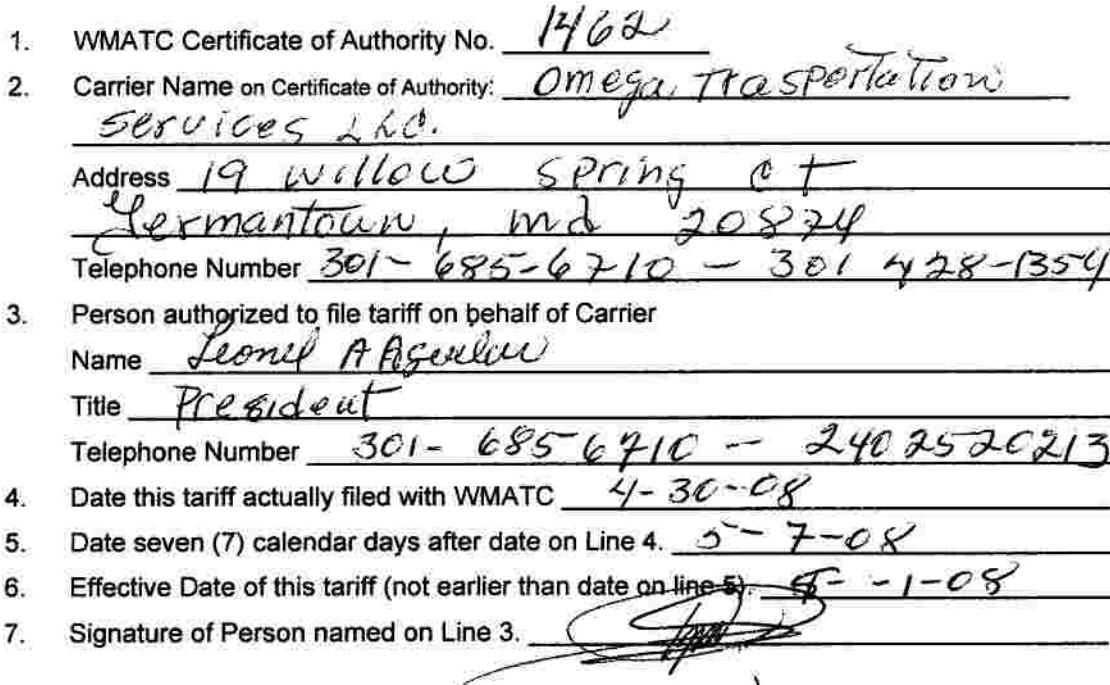 1. WMATC Certificate of Authority No. 1462
2. Carrier Name on Certificate of Authority: Omega Trasportation
Services LLC.
Address 19 willow spring ct
Germantown, md 20874
Telephone Number 301-685-6710 - 301 428-1354
3. Person authorized to file tariff on behalf of Carrier
Name Leonel A
Title President
Telephone Number 301- 685 6710 -- 240 252 0213
4. Date this tariff actually filed with WMATC 4-30-08
5. Date seven (7) calendar days after date on Line 4. 5-7-08
6. Effective Date of this tariff (not earlier than date on line 5). - -1-08
7. Signature of Person named on Line 3.